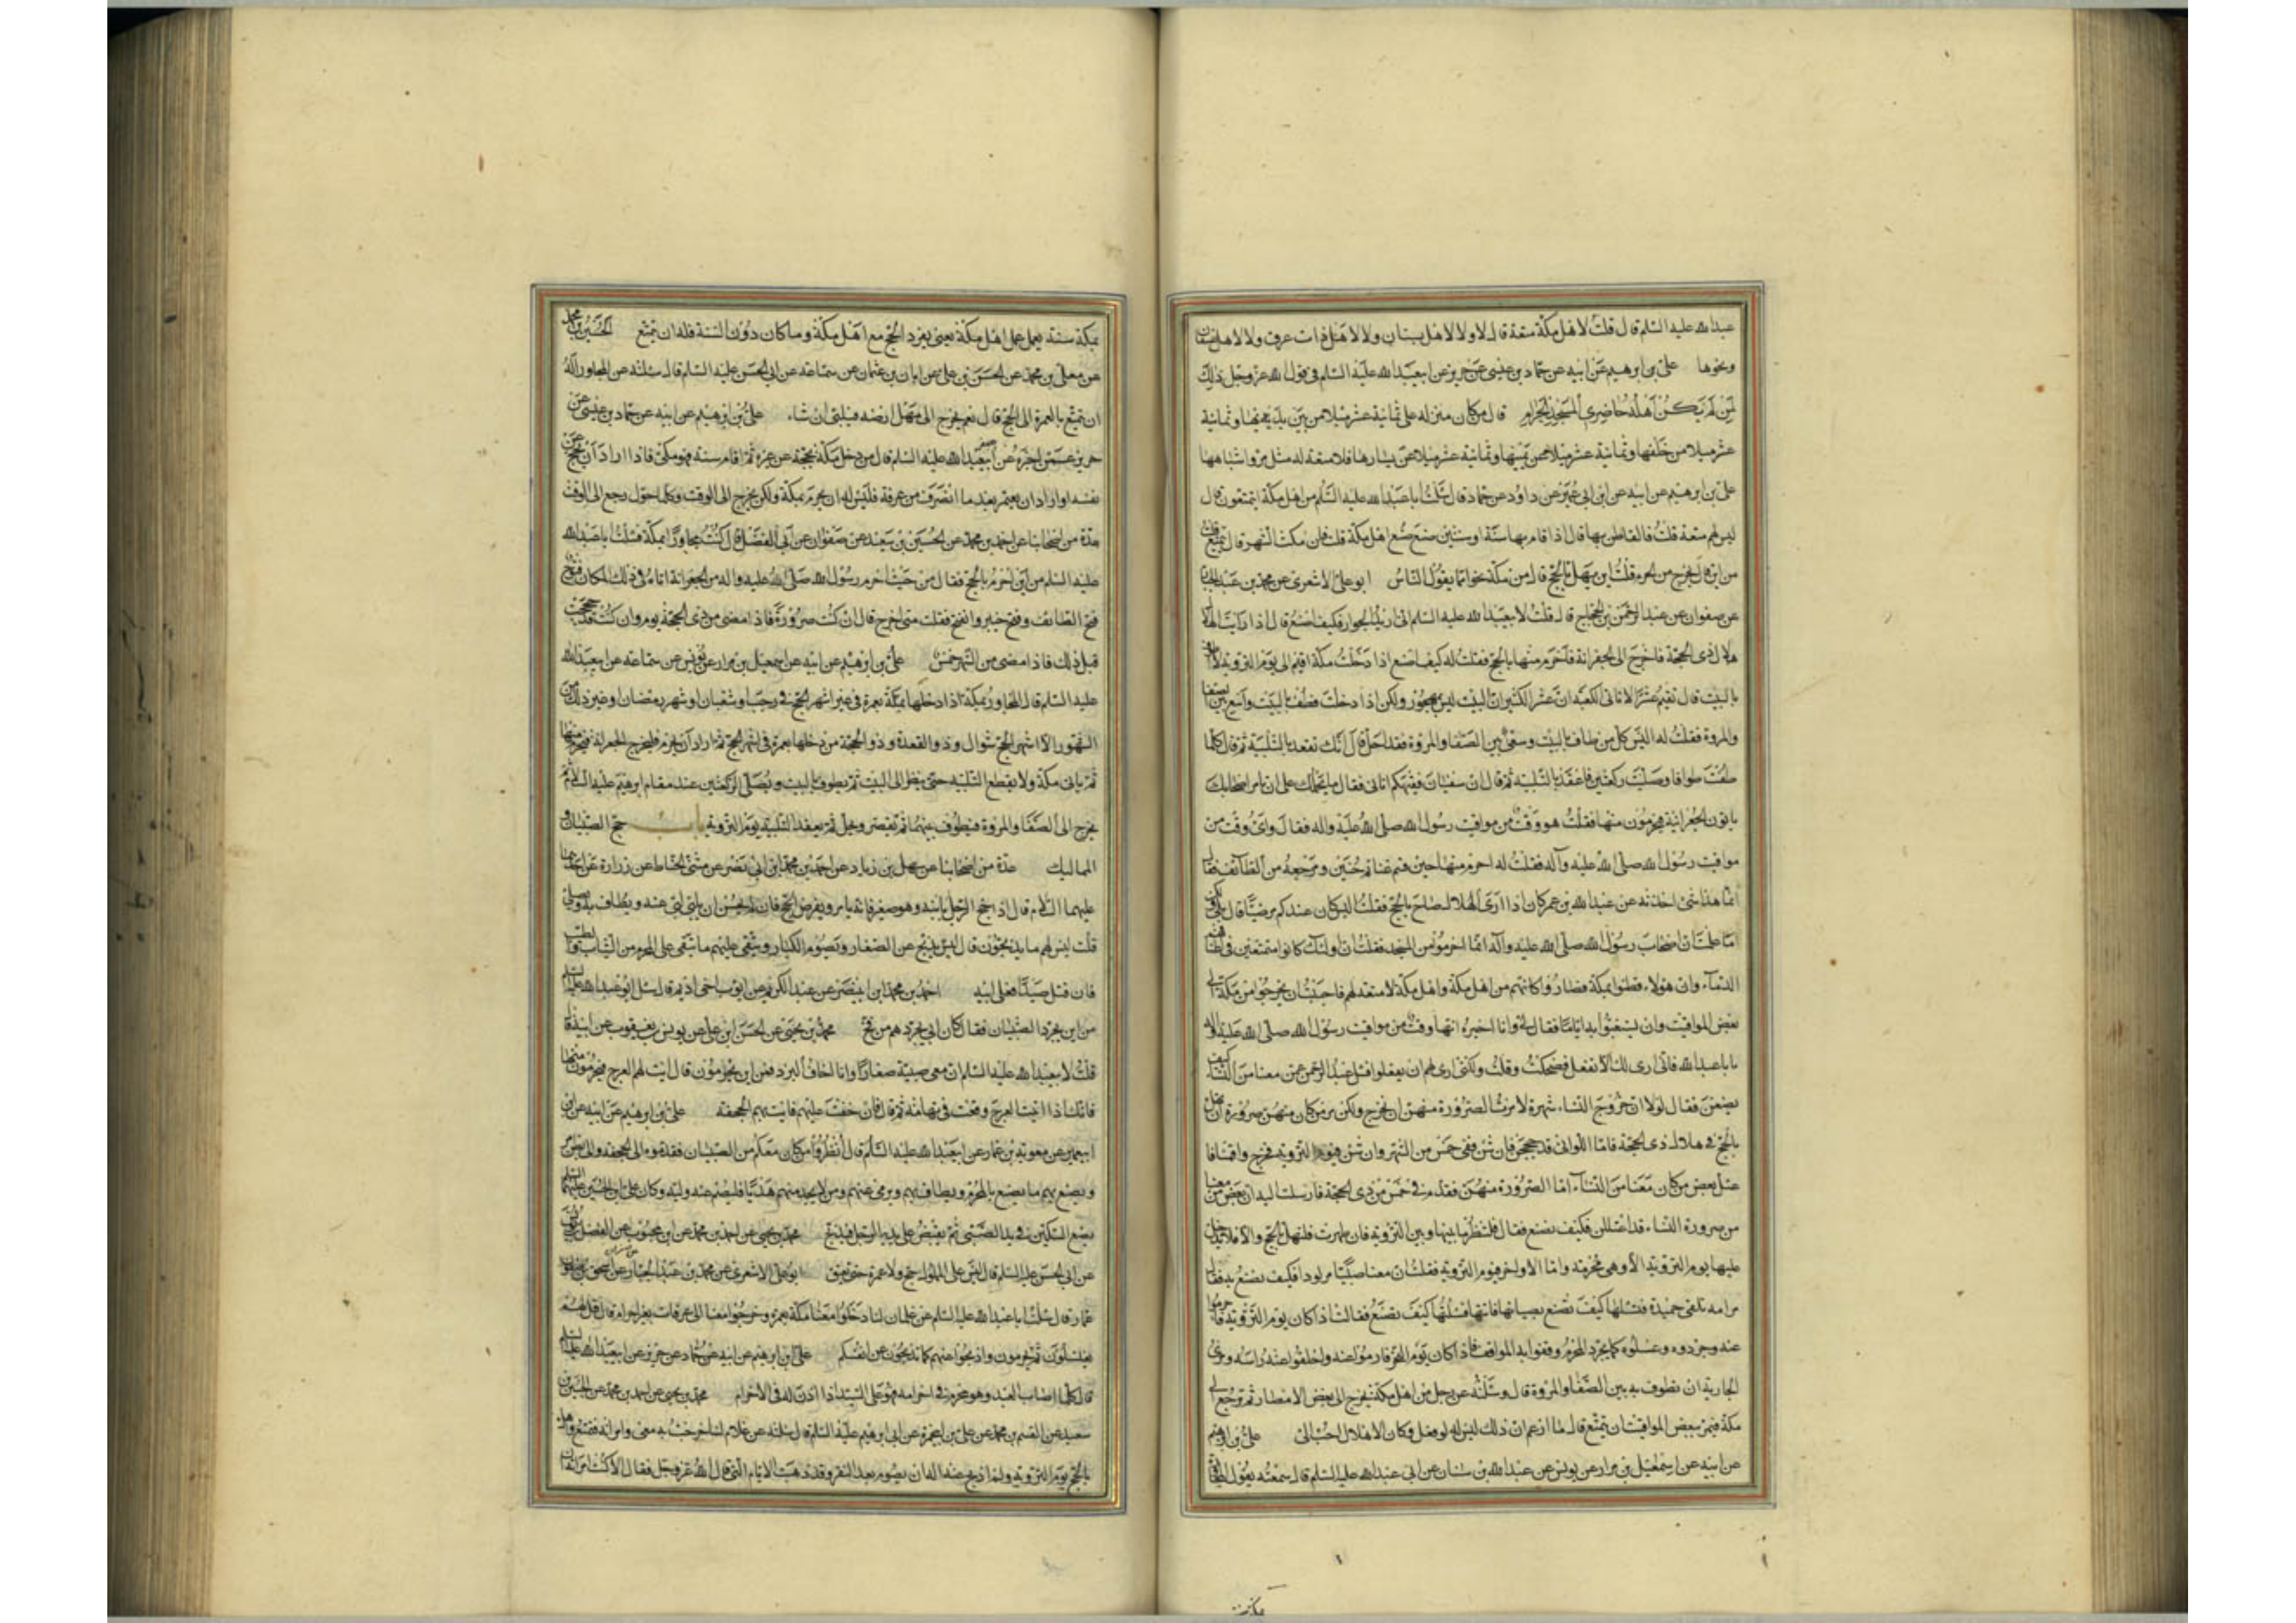 عبدالله عليه السلم قال قلت لاهل مكة متعة قال لا ولا لاهل بستان ولا لاهل ذات عرق ولا لاهل عسفان
ونحوها علي بن ابرهيم عن ابيه عن حماد بن عيسى عن حريز عن ابيعبدالله عليه السلم في قول الله عز وجل ذلك
لمن لم يكن اهله حاضري المسجد الحرام قال من كان منزله على ثمانية عشر ميلا من بين يديها وثمانية
عشر ميلا من خلفها وثمانية عشر ميلا عن يمينها وثمانية عشر ميلا عن يسارها فلا متعة له مثل مر واشباهها
علي بن ابرهيم عن ابيه عن ابن ابي عمير عن داود عن حماد قال سئلت اباعبدالله عليه السلم من اهل مكة ايتمتعون قال
ليس لهم متعة قلت فالقاطن بها قال اذا قام بها سنة او سنتين صنع صنع اهل مكة قلت فان مكث الشهر قال يتمتع قلت
من اين قال يخرج من الحرم قلت اين يهل بالحج قال من مكة نحوا مما يقول الناس ابو علي الاشعري عن محمد بن عبد الجبار
عن صفوان عن عبد الرحمن بن الحجاج قال قلت لابيعبدالله عليه السلم اني اريد الجوار فكيف اصنع قال اذا رايت الهلال
هلال ذي الحجة فاخرج الى الجعرانة فاحرم منها بالحج فقلت له كيف اصنع اذا دخلت مكة اقيم الى يوم التروية لا اطوف
بالبيت قال تقيم عشرا لا تاتي الكعبة ان عشرا لكثير ان البيت ليس بمهجور ولكن اذا دخلت فطف بالبيت واسع بين الصفا
والمروة فقلت له اليس كل من طاف بالبيت وسعى بين الصفا والمروة فقد احل قال انك تعقد بالتلبية ثم قال كلما
طفت طوافا وصليت ركعتين فاعقد بالتلبية ثم قال ان سفيان فقيهكم اتاني فقال ما يحملك على ان تامر اصحابك
ياتون الجعرانة فيحرمون منها فقلت هو وقت من مواقيت رسول الله صلى الله عليه واله فقال واي وقت من
مواقيت رسول الله صلى الله عليه وآله فقلت له احرم منها حين قسم غنائم حنين ومرجعه من الطائف فقال
انما هذا شئ اخذته عن عبدالله بن عمر كان اذا راى الهلال صاح بالحج فقلت اليس كان عندكم مرضيا قال بلى ولكن
اما علمت ان اصحاب رسول الله صلى الله عليه وآله انما احرموا من المسجد فقلت ان اولئك كانوا متمتعين في اعناقهم
الدماء وان هؤلاء قطنوا بمكة فصاروا كانهم من اهل مكة واهل مكة لا متعة لهم فاحببت ان يخرجوا من مكة الى
بعض المواقيت وان يستغبوا به اياما فقال لي وانا اخبره انها وقت من مواقيت رسول الله صلى الله عليه واله
يا باعبدالله فاني ارى لك الا تفعل فضحكت وقلت ولكني ارى لهم ان يفعلوا فسئل عبد الرحمن عمن معنا من النساء كيف
يصنعن فقال لولا ان خروج النساء شهرة لامرت الصرورة منهن ان تخرج ولكن مر من كان منهن صرورة ان تهل
بالحج في هلال ذي الحجة فاما اللواتي قد حججن فان شئن ففي خمس من الشهر وان شئن فيوم التروية فخرج واقمنا فاـ
عتل بعض من كان معنا من النساء الصرورة منهن فقدم في خمس من ذي الحجة فارسلت اليه ان بعض من معنا
من صرورة النساء قد اعتللن فكيف تصنع فقال فلتنظر ما بينها وبين التروية فان طهرت فلتهل بالحج والا فلا يدخل
عليها يوم التروية الا وهي محرمة واما الاواخر فيوم التروية فقلت ان معنا صبيا مولودا فكيف نصنع به فقال
مر امه تلقى حميدة فتسئلها كيف تصنع بصبيانها فاتتها فسئلتها كيف تصنع فقالت اذا كان يوم التروية فاحرموا
عنه وجردوه وغسلوه كما يجرد المحرم وقفوا به المواقف فاذا كان يوم النحر فارموا عنه واحلقوا عنه راسه ومري
الجارية ان تطوف به بين الصفا والمروة قال وسئلته عن رجل من اهل مكة يخرج الى بعض الامصار ثم يرجع الى
مكة فيمر ببعض المواقيت ان يتمتع قال ما ازعم ان ذلك ليس له لو فعل وكان الاهلال احب الي علي بن ابرهيم
عن ابيه عن اسمعيل بن مرار عن يونس عن عبدالله بن سنان عن ابي عبدالله عليه السلم قال سمعته يقول المجاور
بمكة سنة يعمل عمل اهل مكة يعني يفرد الحج مع اهل مكة وما كان دون السنة فله ان يتمتع الحسين بن محمد
عن معلى بن محمد عن الحسن بن علي عن ابان بن عثمان عن سماعة عن ابي الحسن عليه السلم قال سئلته عن المجاور اله
ان يتمتع بالعمرة الى الحج قال نعم يخرج الى مهل ارضه فيلبي ان شاء علي بن ابرهيم عن ابيه عن حماد بن عيسى عن
حريز عمن اخبره عن ابيعبدالله عليه السلم قال من دخل مكة بحجة عن غيره ثم اقام سنة فهو مكي فاذا اراد ان يحج عن
نفسه او اراد ان يعتمر بعد ما انصرف من عرفة فليس له ان يحرم بمكة ولكن يخرج الى الوقت وكلما حول رجع الى الوقت
عدة من اصحابنا عن احمد بن محمد عن الحسين بن سعيد عن صفوان عن ابي الفضل قال كنت مجاورا بمكة فسئلت اباعبدالله
عليه السلم من اين احرم بالحج فقال من حيث احرم رسول الله صلى الله عليه واله من الجعرانة اتاه في ذلك المكان فتوح
فتح الطائف وفتح خيبر والفتح فقلت متى اخرج قال ان كنت صرورة فاذا مضى من ذي الحجة يوم وان كنت قد حججت
قبل ذلك فاذا مضى من الشهر خمس علي بن ابرهيم عن ابيه عن اسمعيل بن مرار عن يونس عن سماعة عن ابيعبدالله
عليه السلم قال المجاور بمكة اذا دخلها بعمرة في غير اشهر الحج في رجب او شعبان او شهر رمضان او غير ذلك من
الشهور الا اشهر الحج شوال وذو القعدة وذو الحجة من دخلها بعمرة في اشهر الحج ثم اراد ان يحرم فليخرج الى الجعرانة فيحرم منها
ثم ياتي مكة ولا يقطع التلبية حتى ينظر الى البيت ثم يطوف بالبيت ويصلي الركعتين عند مقام ابرهيم عليه السلام ثم
يخرج الى الصفا والمروة فيطوف بينهما ثم يقصر ويحل ثم يعقد التلبية يوم التروية باب حج الصبيان و
المماليك عدة من اصحابنا عن سهل بن زياد عن احمد بن محمد ابن ابي نصر عن مثنى الحناط عن زرارة عن احدهما
عليهما السلام قال اذا حج الرجل بابنه وهو صغير فانه يامره ان يلبي ويفرض الحج فان لم يحسن ان يلبي لبي عنه ويطاف به ويصلى
قلت ليس لهم ما يذبحون قال يذبح عن الصغار ويصوم الكبار ويتقى عليهم ما يتقى على المحرم من الثياب والطيب
فان قتل صيدا فعلى ابيه احمد بن محمد ابن ابينصر عن عبد الكريم عن ايوب اخي اديم قال سئل ابو عبدالله عليه السلم
من اين يجرد الصبيان فقال كان ابي يجردهم من فخ محمد بن يحيى عن الحسن ابن علي عن يونس بن يعقوب عن ابيه قال
قلت لابيعبدالله عليه السلم ان معي صبية صغارا وانا اخاف عليهم البرد فمن اين يحرمون قال ايت بهم العرج فيحرموا منها
فانك اذا اتيت العرج وقعت في تهامة ثم قال فان خفت عليهم فايت بهم الجحفة علي بن ابرهيم عن ابيه عن ابن
ابيعمير عن معوية بن عمار عن ابيعبدالله عليه السلم قال انظروا من كان معكم من الصبيان فقدموه الى الجحفة او الى بطن مر
ويصنع بهم ما يصنع بالمحرم ويطاف بهم ويرمى عنهم ومن لا يجد منهم هديا فليصم عنه وليه وكان علي بن الحسين عليهما السلم
يضع السكين في يد الصبي ثم يقبض على يديه الرجل فيذبح محمد بن يحيى عن احمد بن محمد عن ابن محبوب عن الفضل بن يونس
عن ابي الحسن عليه السلم قال ليس على المملوك حج ولا عمرة حتى يعتق ابو علي الاشعري عن محمد بن عبد الجبار عن صفوان عن اسحق بن
عمار قال سئلت اباعبدالله عليه السلم عن غلمان لنا دخلوا معنا مكة بعمرة وخرجوا معنا الى عرفات بغير احرام قال قل لهم
يغتسلون ثم يحرمون واذبحوا عنهم كما تذبحون عن انفسكم علي بن ابرهيم عن ابيه عن حماد عن حريز عن ابيعبدالله عليه السلم
قال كلما اصاب العبد وهو محرم في احرامه فهو على السيد اذا اذن له في الاحرام محمد بن يحيى عن احمد بن محمد عن الحسين بن
سعيد عن القسم بن محمد عن علي بن ابيحمزة عن ابي ابرهيم عليه السلم قال سئلته عن غلام لنا خرجت به معي وامرته فتمتع واهل
بالحج يوم التروية ولم اذبح عنه اله ان يصوم بعد النفر وقد ذهبت الايام التي قال الله عز وجل فقال الا كنت امرته ان